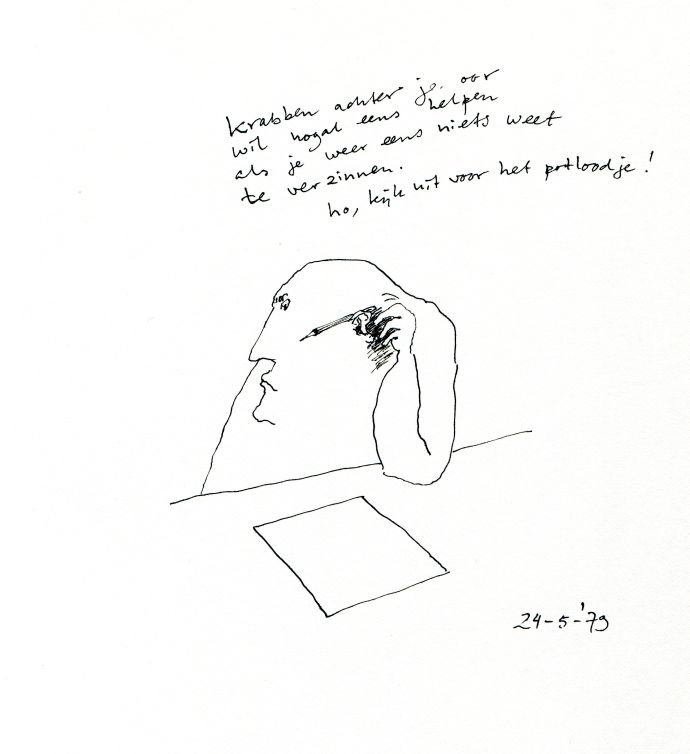 krabben achter je oor
wil nogal eens helpen
als je weer eens niets weet
te verzinnen.
ho, kijk uit voor het potloodje!
24-5-'79